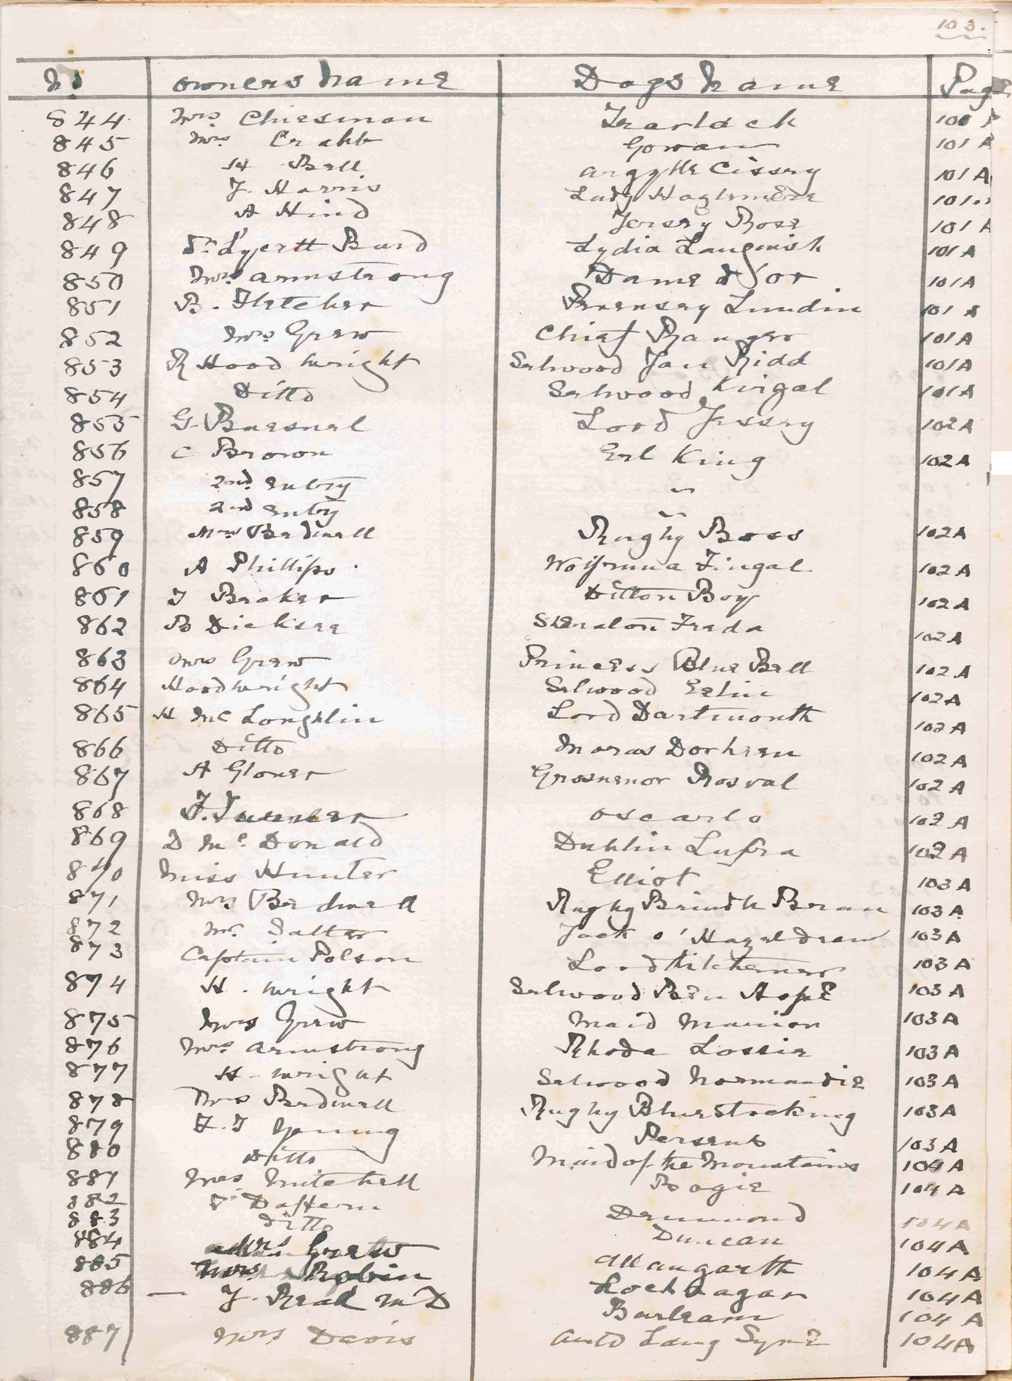 103.
No owners Name Dogs Name Page
844 Mrs Chiesman 100 A
845 Mrs Crabb Gowan 101 A
846 H Bell Argylle Cissey 101 A
847 J. Harris Lady 101
848 A Hind Jersey Rose 101 A
849 Burd Lydia Languish 101 A
850 Mrs Armstrong Dame d'or 101 A
851 B. Fletcher Pevensey Lundin 101 A
852 Mrs Grew Chief Ranger 101 A
853 R Hood Wright Selwood Jan Ridd 101 A
854 Ditto Selwood Kingal 101A
855 G. Lord Jessey 102A
856 C Brown Erl King 102 A
857 2nd Entry "
858 2nd Entry "
859 Mrs Birdwell Rugby Boss 102A
860 A Phillips Fingal 102 A
861 J Broker Ditton Boy 102 A
862 B Dicksee Sheraton Freda 102 A
863 Mrs Grew Princess Blue Bell 102 A
864 Hood Wright Selwood 102A
865 H McLoughlin Lord Dartmouth 102A
866 Ditto Dorhren 102 A
867 A Glover Grosvenor Rosval 102 A
868 F. Oscarlo 102 A
869 D McDonald Dublin Lufra 102 A
870 Miss Hunter Elliot 103 A
871 Mrs Birdwell Rugby Brindle Beran 103 A
872 Mr. Salter Jock o' Hazeldean 103 A
873 Captain Polson Lord Kitchener 103 A
874 H. Wright Selwood Ben Hope 103 A
875 Mrs Grew Maid Marion 103 A
876 Mrs Armstrong Rhoda Lossie 103 A
877 H. Wright Selwood Normandie 103 A
878 Mrs Birdwell Rugby Bluestocking 103A
879 F.J Young Perseus 103 A
880 Ditto Maid of the Mountains 104 A
881 Mrs Mitchell Bogie 104 A
882 Daffern Drummond 104A
883 Ditto Duncan 104A
884 Mrs Grew Allangarth 104 A
885 Mrs Robin Lochnagar 104 A
886 — J. Read M D 104 A
887 Mrs Davis Auld Lang Syne 104A